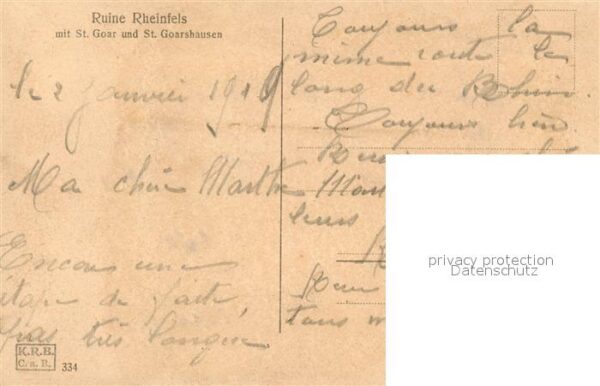 Ruine Rheinfels
mit St. Goar und St. Goarshausen
le 2 Janvier 1919
Ma chère Marthe
Encore une
étape de faite,
pas très longue
Toujours la
même route le
long du Rhin.
Toujours bien.
leurs
Pour
tous
K.R.B.
C. a. R.
334
privacy protection
Datenschutz